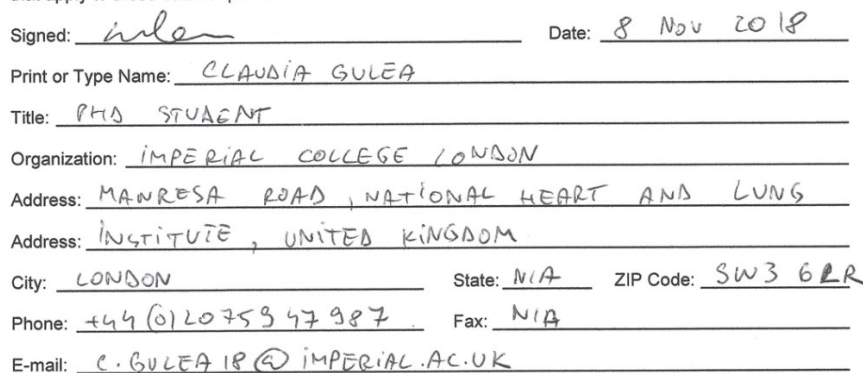 Signed: Date: 8 Nov 2018
Print or Type Name: CLAUDIA GULEA
Title: PHD STUDENT
Organization: IMPERIAL COLLEGE LONDON
Address: MANRESA ROAD, NATIONAL HEART AND LUNG
Address: INSTITUTE, UNITED KINGDOM
City: LONDON State: N/A ZIP Code: SW3 6LR
Phone: +44 (0)20759 47987 Fax: N/A
E-mail: C.GULEA18@IMPERIAL.AC.UK